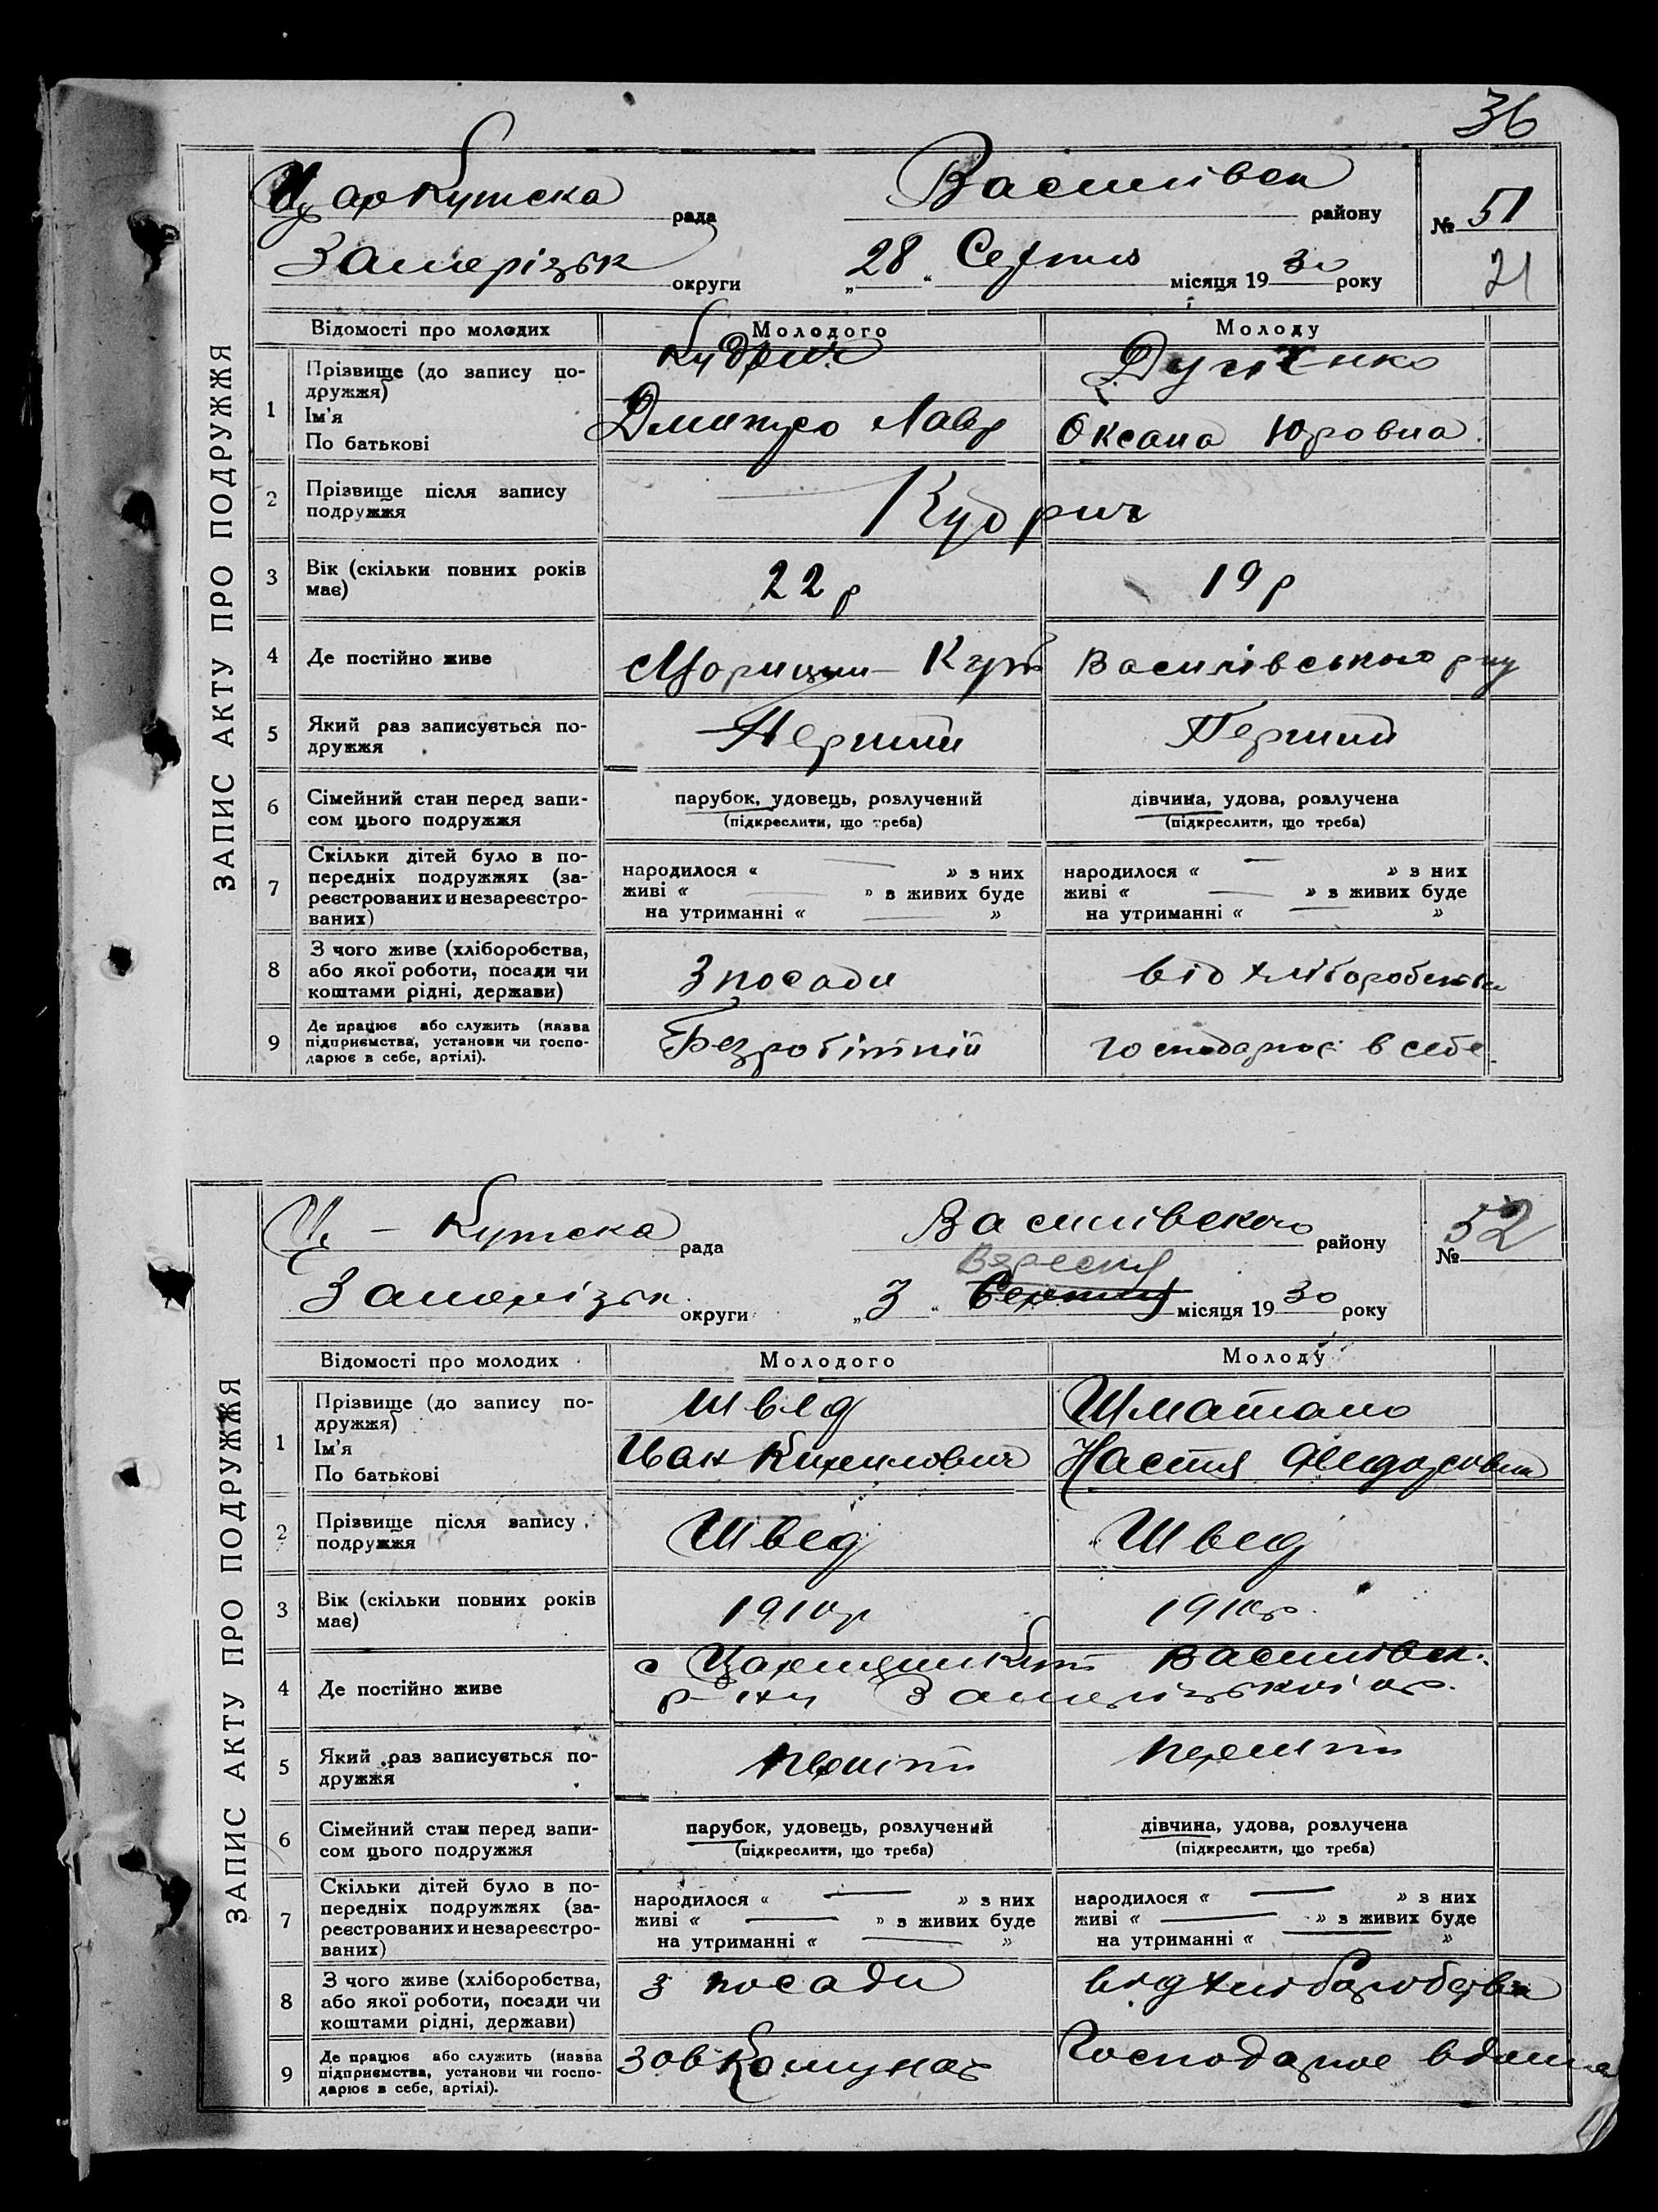 36
ЗАПИС АКТУ ПРО ПОДРУЖЖЯ
Цар Кутска рада Василівск району № 51
Запорізьк округи „28“ Серпня місяця 1930 року 21
Відомості про молодих Молодого Молоду
1 Прізвище (до запису подружжя) Ім'я По батькові
Кудрич
Дмитро Лавр Оксана Юровна
2 Прізвище після запису подружжя Кудрич
3 Вік (скільки повних років має) 22 р 19 р
4 Де постійно живе Кут Василівського р-ну
5 Який раз записується подружжя Перший Перший
6 Сімейний стан перед записом цього подружжя
парубок, удовець, розлучений дівчина, удова, розлучена
(підкреслити, що треба) (підкреслити, що треба)
7 Скільки дітей було в попередніх подружжях (зареєстрованих и незареєстрованих)
народилося « — » з них народилося « — » з них
живі « — » з живих буде живі « — » з живих буде
на утриманні « — » на утриманні « — »
8 З чого живе (хліборобства, або якої роботи, посади чи коштами рідні, держави) З посади від хліборобства
9 Де працює або служить (назва підприємства, установи чи господарює в себе, артілі). Безробітній господарює в себе.
ЗАПИС АКТУ ПРО ПОДРУЖЖЯ
Ц – Кутска рада Василівского району № 52
Вересня
Запорізьк. округи „3“ Серпня місяця 1930 року
Відомості про молодих Молодого Молоду
1 Прізвище (до запису подружжя) Ім'я По батькові
Швед
Иван Кирилович Настя Федоровна
2 Прізвище після запису подружжя Швед Швед
3 Вік (скільки повних років має) 1910р 1910р.
4 Де постійно живе с Царицин Кут Василівск.
р-ну Запорізької окр.
5 Який раз записується подружжя перший перший
6 Сімейний стан перед записом цього подружжя
парубок, удовець, розлучений дівчина, удова, розлучена
(підкреслити, що треба) (підкреслити, що треба)
7 Скільки дітей було в попередніх подружжях (зареєстрованих и незареєстрованих)
народилося « — » з них народилося « — » з них
живі « — » з живих буде живі « — » з живих буде
на утриманні « — » на утриманні « — »
8 З чого живе (хліборобства, або якої роботи, посади чи коштами рідні, держави) з посади від хліборобства
9 Де працює або служить (назва підприємства, установи чи господарює в себе, артілі). Господарює вдома